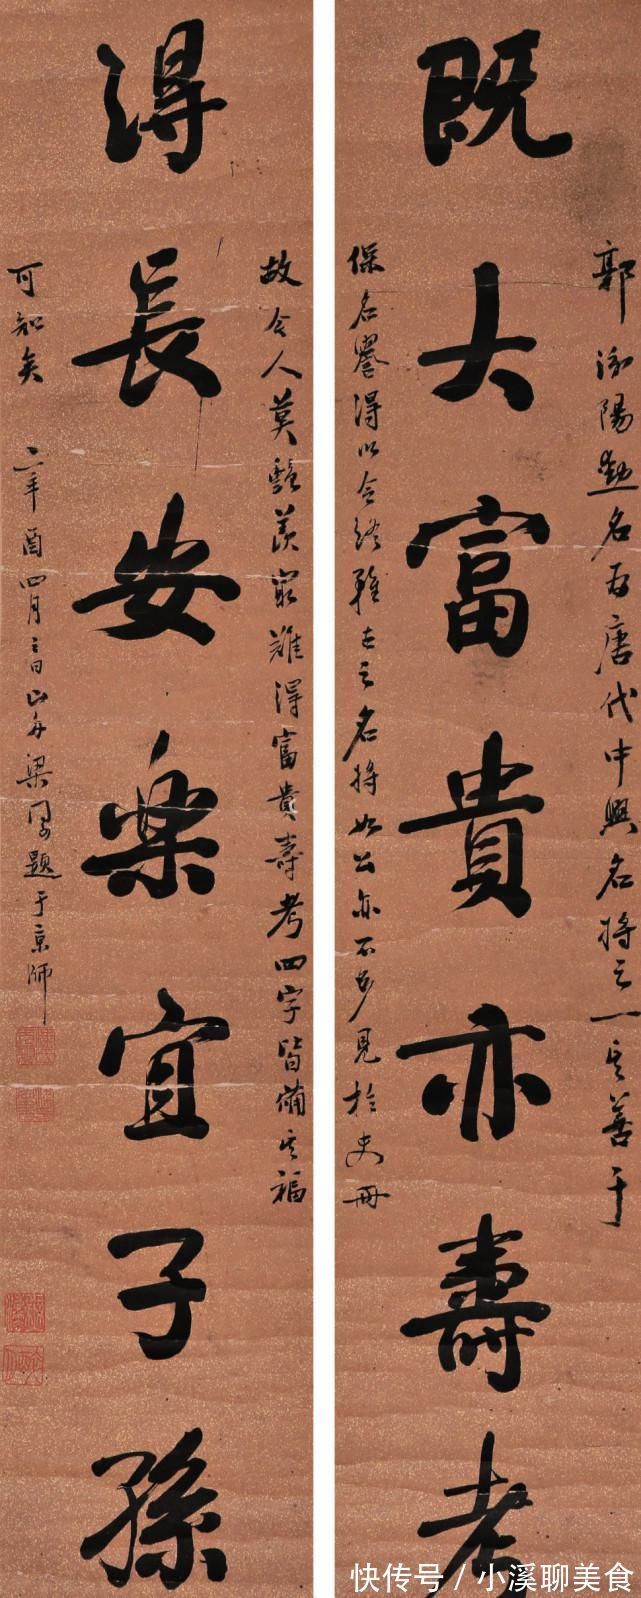 郭汾陽勳名為唐代中興名將之一其善于
既大富貴亦壽考
保名譽得以令終雖古之名將如公亦不多見於史冊
故令人莫豔羨最難得富貴壽考四字皆備其福
得長安樂宜子孫
可知矣 辛酉四月 山舟梁同書題于京師
快传号 / 小溪聊美食